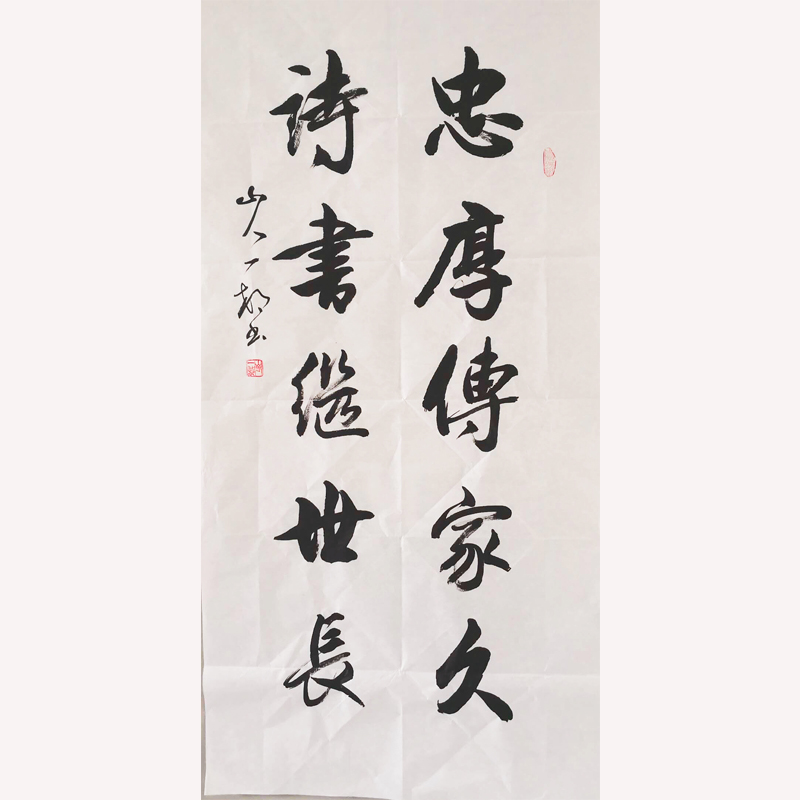 忠厚傳家久
詩書繼世長
山人一郝書